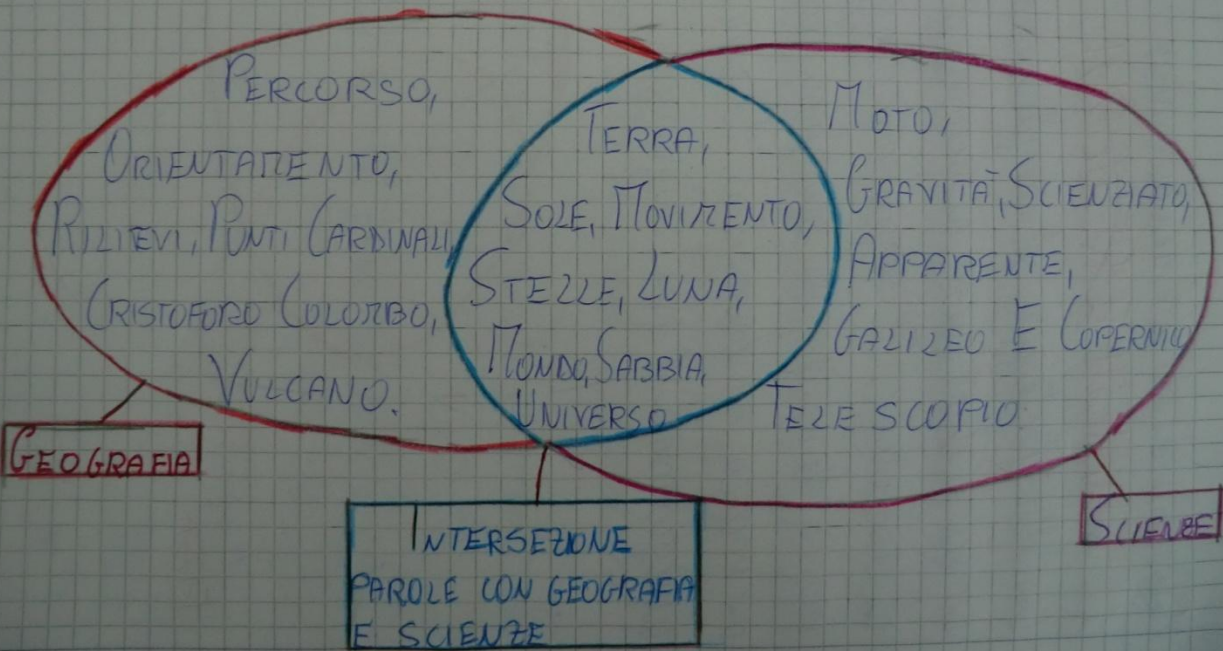 PERCORSO,
ORIENTAMENTO,
RILIEVI, PUNTI CARDINALI,
CRISTOFORO COLOMBO,
VULCANO.
TERRA,
SOLE, MOVIMENTO,
STELLE, LUNA,
MONDO, SABBIA,
UNIVERSO
MOTO,
GRAVITÀ, SCIENZIATO,
APPARENTE,
GALILEO E COPERNICO
TELESCOPIO
GEOGRAFIA
INTERSEZIONE
PAROLE CON GEOGRAFIA
E SCIENZE
SCIENZE